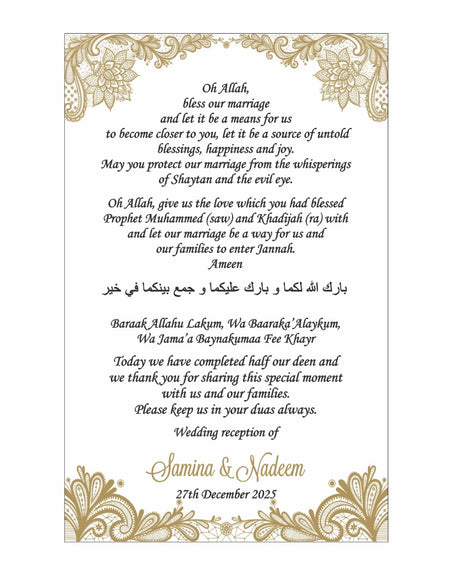 Oh Allah,
bless our marriage
and let it be a means for us
to become closer to you, let it be a source of untold
blessings, happiness and joy.
May you protect our marriage from the whisperings
of Shaytan and the evil eye.
Oh Allah, give us the love which you had blessed
Prophet Muhammed (saw) and Khadijah (ra) with
and let our marriage be a way for us and
our families to enter Jannah.
Ameen
بارك الله لكما و بارك عليكما و جمع بينكما في خير
Baraak Allahu Lakum, Wa Baaraka'Alaykum,
Wa Jama'a Baynakumaa Fee Khayr
Today we have completed half our deen and
we thank you for sharing this special moment
with us and our families.
Please keep us in your duas always.
Wedding reception of
Samina & Nadeem
27th December 2025